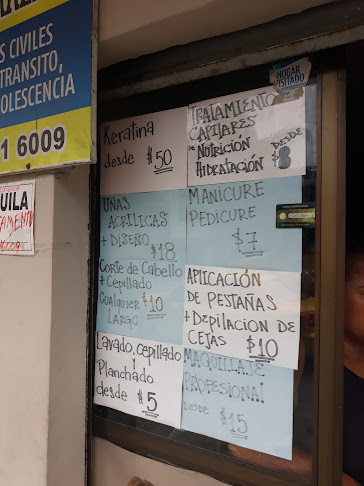 S CIVILES
TRÁNSITO,
OLESCENCIA
1 6009
UILA
HOGAR
VISITADO
Keratina
desde $50
UÑAS
ACRÍLICAS
+ DISEÑO
$18
Corte de Cabello
+ Cepillado
Cualquier $10
LARGO
Lavado, cepillado
y
Planchado
desde $5
TRATAMIENTO
CAPILARES
DE NUTRICIÓN
HIDRATACIÓN
DESDE
$8
MANICURE
PEDICURE
$7
APLICACIÓN
DE PESTAÑAS
+ DEPILACION DE
CEJAS $10
MAQUILLAJE
PROFESIONAL
DESDE $15